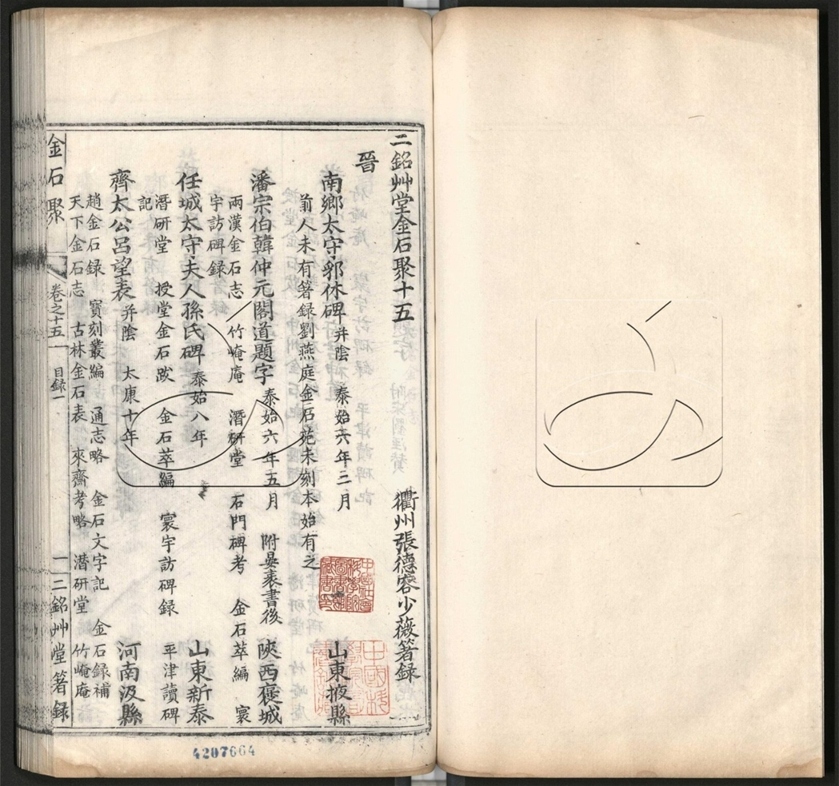 二銘艸堂金石聚十五
衢州張德容少薇著錄
晉
南鄉太守郛休碑 并陰 泰始六年二月 山東掖縣
前人未有著錄劉燕庭金石苑未刻本始有之
潘宗伯韓仲元閣道題字 泰始六年五月 附晏袤書後 陝西褒城
兩漢金石志 竹崦庵 潛研堂 石門碑考 金石萃編 寰
宇訪碑錄
任城太守夫人孫氏碑 泰始八年 山東新泰
潛研堂 授堂金石跋 金石萃編 寰宇訪碑錄 平津讀碑
記
齊太公呂望表 并陰 太康十年 河南汲縣
趙金石錄 寶刻叢編 通志略 金石文字記 金石錄補
天下金石志 古林金石表 來齋考略 潛研堂 竹崦庵
金石聚 卷之十五 目錄一 二銘艸堂著錄
4207664